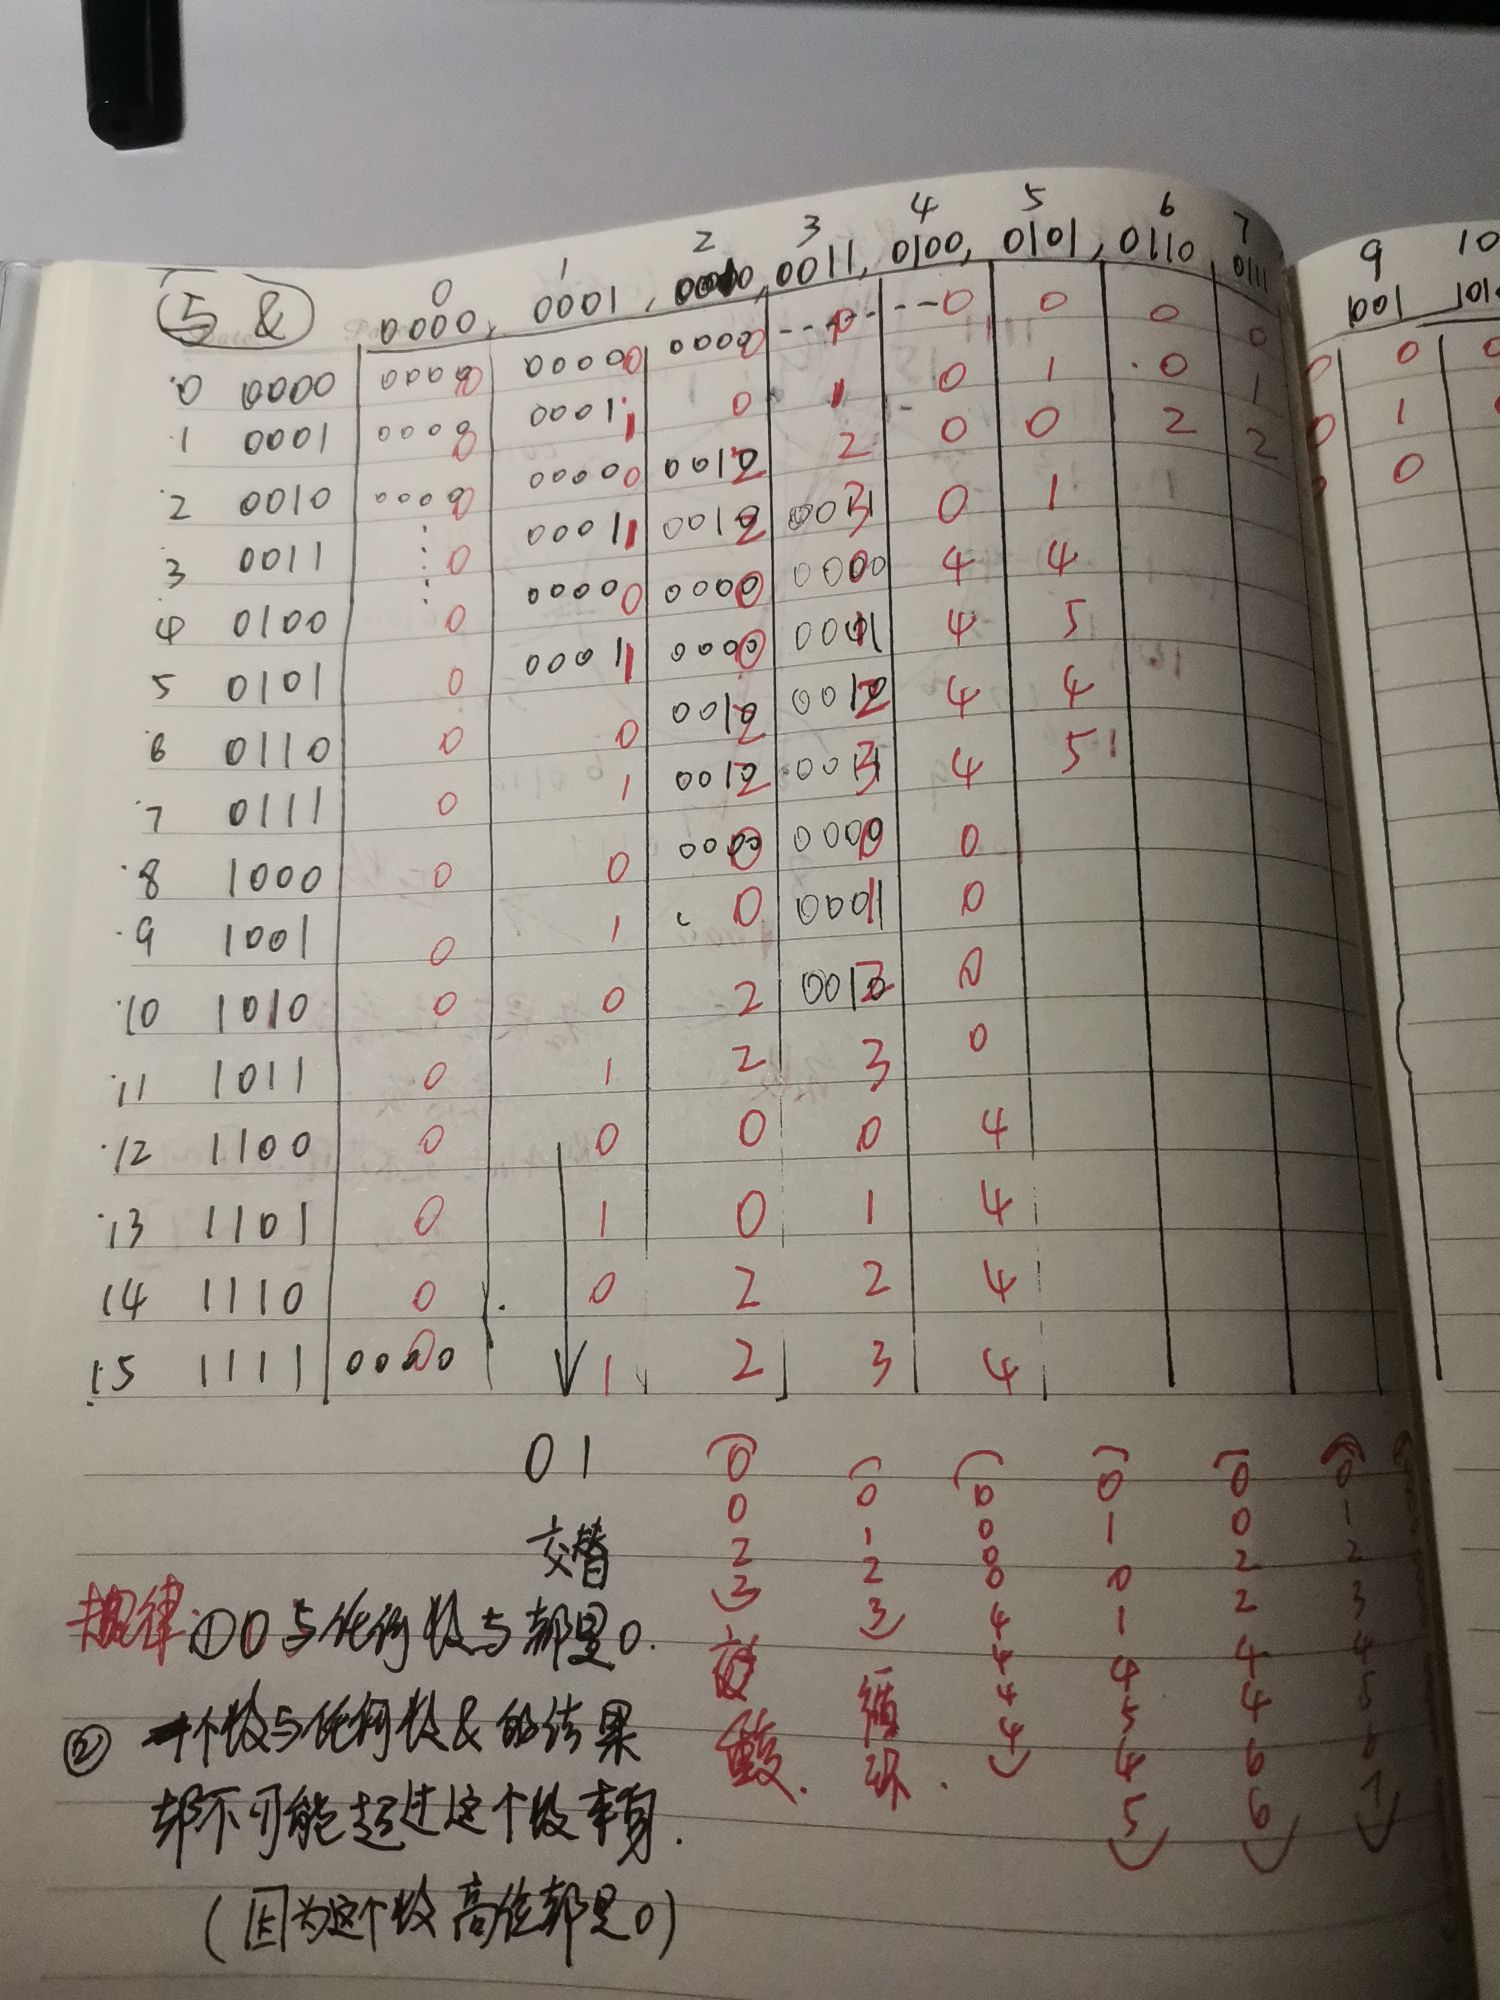 0 1 2 3 4 5 6 7 9 10
5 & 0000, 0001, 0010, 0011, 0100, 0101, 0110, 0111 1001
0 0000 0000 0 0000 0 0000 0 0 0 0 0 0 0
1 0001 0000 0 0001 1 0 1 0 1 0 1 1
2 0010 0000 0 0000 0 0010 2 2 0 0 2 2 0
3 0011 0 0001 1 0010 2 0011 3 0 1
4 0100 0 0000 0 0000 0 0000 0 4 4
5 0101 0 0001 1 0000 0 0001 1 4 5
6 0110 0 0 0010 2 0010 2 4 4
7 0111 0 1 0010 2 0011 3 4 5
8 1000 0 0 0000 0 0000 0 0
9 1001 0 1 0 0001 1 0
10 1010 0 0 2 0010 2 0
11 1011 0 1 2 3 0
12 1100 0 0 0 0 4
13 1101 0 1 0 1 4
14 1110 0 0 2 2 4
15 1111 0000 0 1 2 3 4
01 0 0 0 0 0 0
0 1 0 1 0 1
交替 2 2 0 0 2 2
2 3 0 1 2 3
4 4 4 4
4 5 4 5
4 4 6 6
4 5 6 7
循环.
规律: ①0与任何数与都是0.
② 一个数与任何数&的结果
都不可能超过这个数本身.
(因为这个数高位都是0)